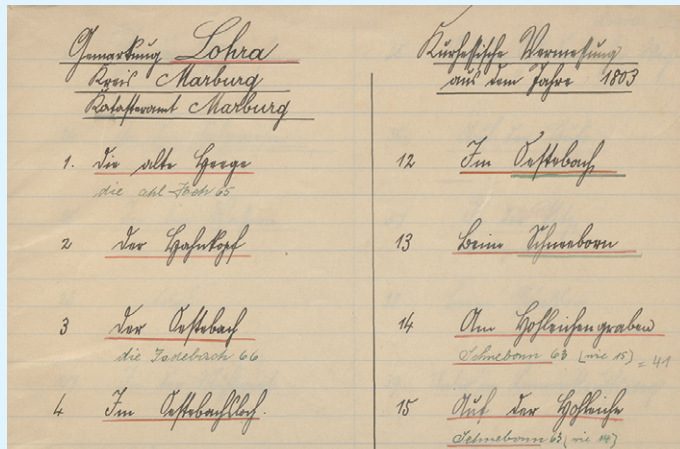 Gemarkung Lohra
Kreis Marburg
Katasteramt Marburg
1. Die alte Heege
2 Der Hahnkopf
3 Der Sestebach
4 Im Sestebachsloch.
Kurhessische Vermessung
aus dem Jahre 1803
12 Im Sestebach
13 Beim Schneeborn
14 Am Hohleichengraben
63 (wie 15) = 41
15 Auf der Hohleiche
63 (wie 14)